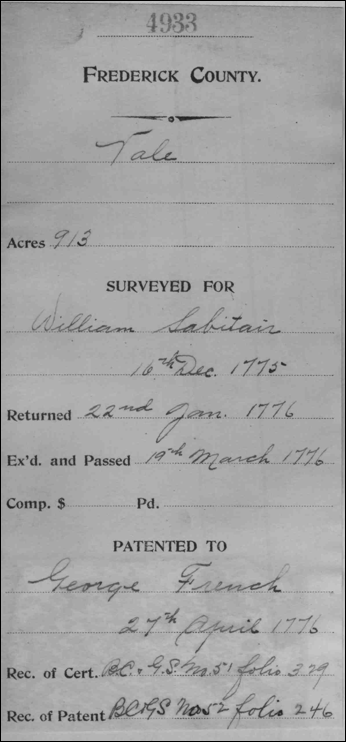 4933
FREDERICK COUNTY.
Vale
Acres 913
SURVEYED FOR
William Sabitair
16th Dec. 1775
Returned 22nd Jan. 1776
Ex'd. and Passed 19th March 1776
Comp. $ Pd.
PATENTED TO
George French
27th April 1776
Rec. of Cert. B.C. & G.S. No 51 folio 329
Rec. of Patent BC&GS No 52 folio 246